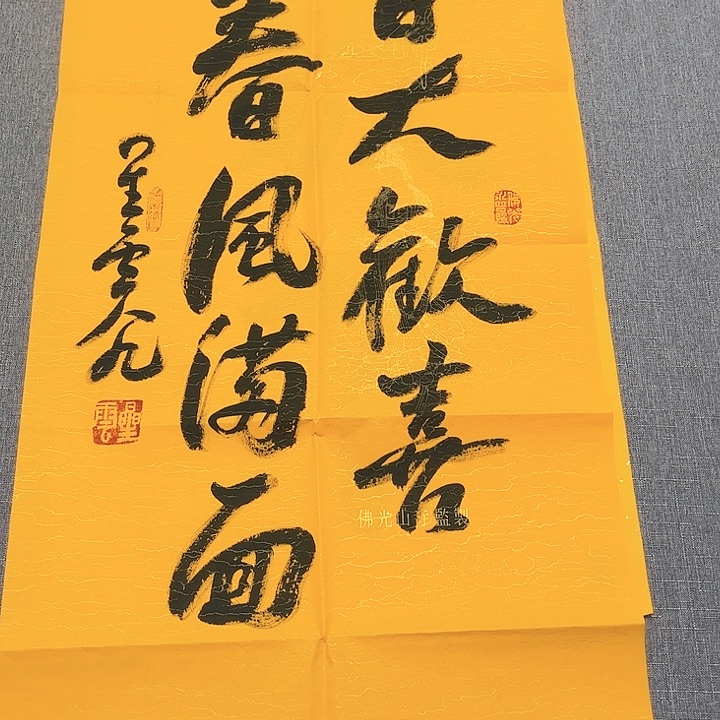 大歡喜
春風滿面
星雲
星雲
佛光山寺監製